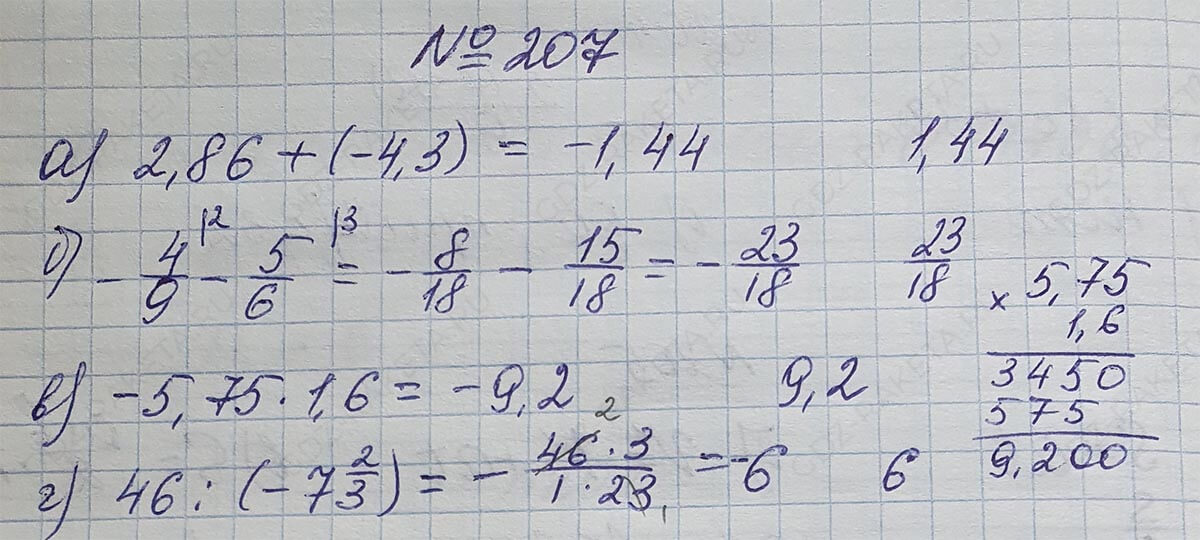 № 207
а) 2,86 + (-4,3) = -1,44 1,44
б) - 4/9 |2 - 5/6 |3 = - 8/18 - 15/18 = - 23/18 23/18
× 5,75
1,6
3450
575
9,200
в) -5,75 · 1,6 = -9,2 9,2
г) 46 : (-7 2/3) = - 46 2 · 3 / 1 · 23 1 = -6 6